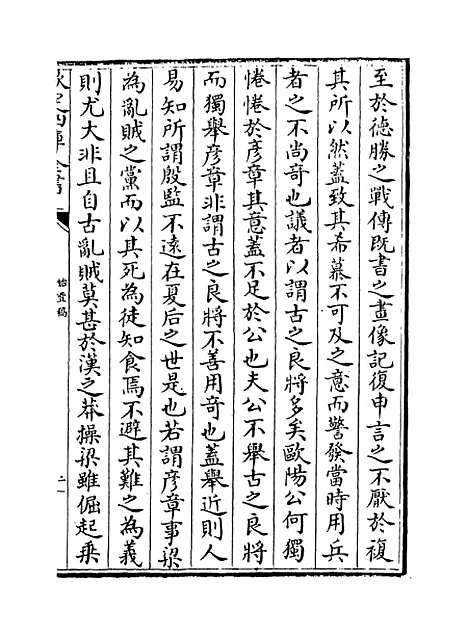 至於德勝之戰傳既書之畫像記復申言之不厭於複
其所以然蓋致其希慕不可及之意而警發當時用兵
者之不尚奇也議者以謂古之良將多矣歐陽公何獨
惓惓於彦章其意蓋不足於公也夫公不舉古之良將
而獨舉彦章非謂古之良將不善用奇也蓋舉近則人
易知所謂殷監不遠在夏后之世是也若謂彦章事梁
為亂賊之黨而以其死為徒知食焉不避其難之為義
則尤大非且自古亂賊莫甚於漢之莽操梁雖倔起乗
欽定四庫全書
始豐稿
二